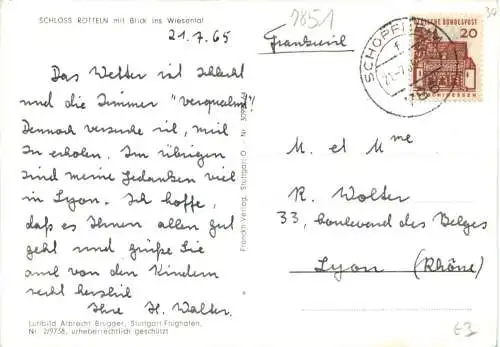 SCHLOSS RÖTTELN mit Blick ins Wiesental
7851
21.7.65
Frankreich
SCHOPFHEIM
DEUTSCHE BUNDESPOST
20
Das Wetter ist schlecht
und die Zimmer "verqualmt".
Dennoch versuche ich, mich
zu erholen. Im übrigen
sind meine Gedanken viel
in Lyon. Ich hoffe,
daß es Ihnen allen gut
geht und grüße Sie
auch von den Kindern
recht herzlich
Ihre H. Walter.
Franckh-Verlag, Stuttgart-O Nr.
M. et Mme
R. Wolter
33, boulevard des Belges
Lyon (Rhône)
Luftbild Albrecht Brugger, Stuttgart-Flughafen,
Nr. 2/9738, urheberrechtlich geschützt
€3